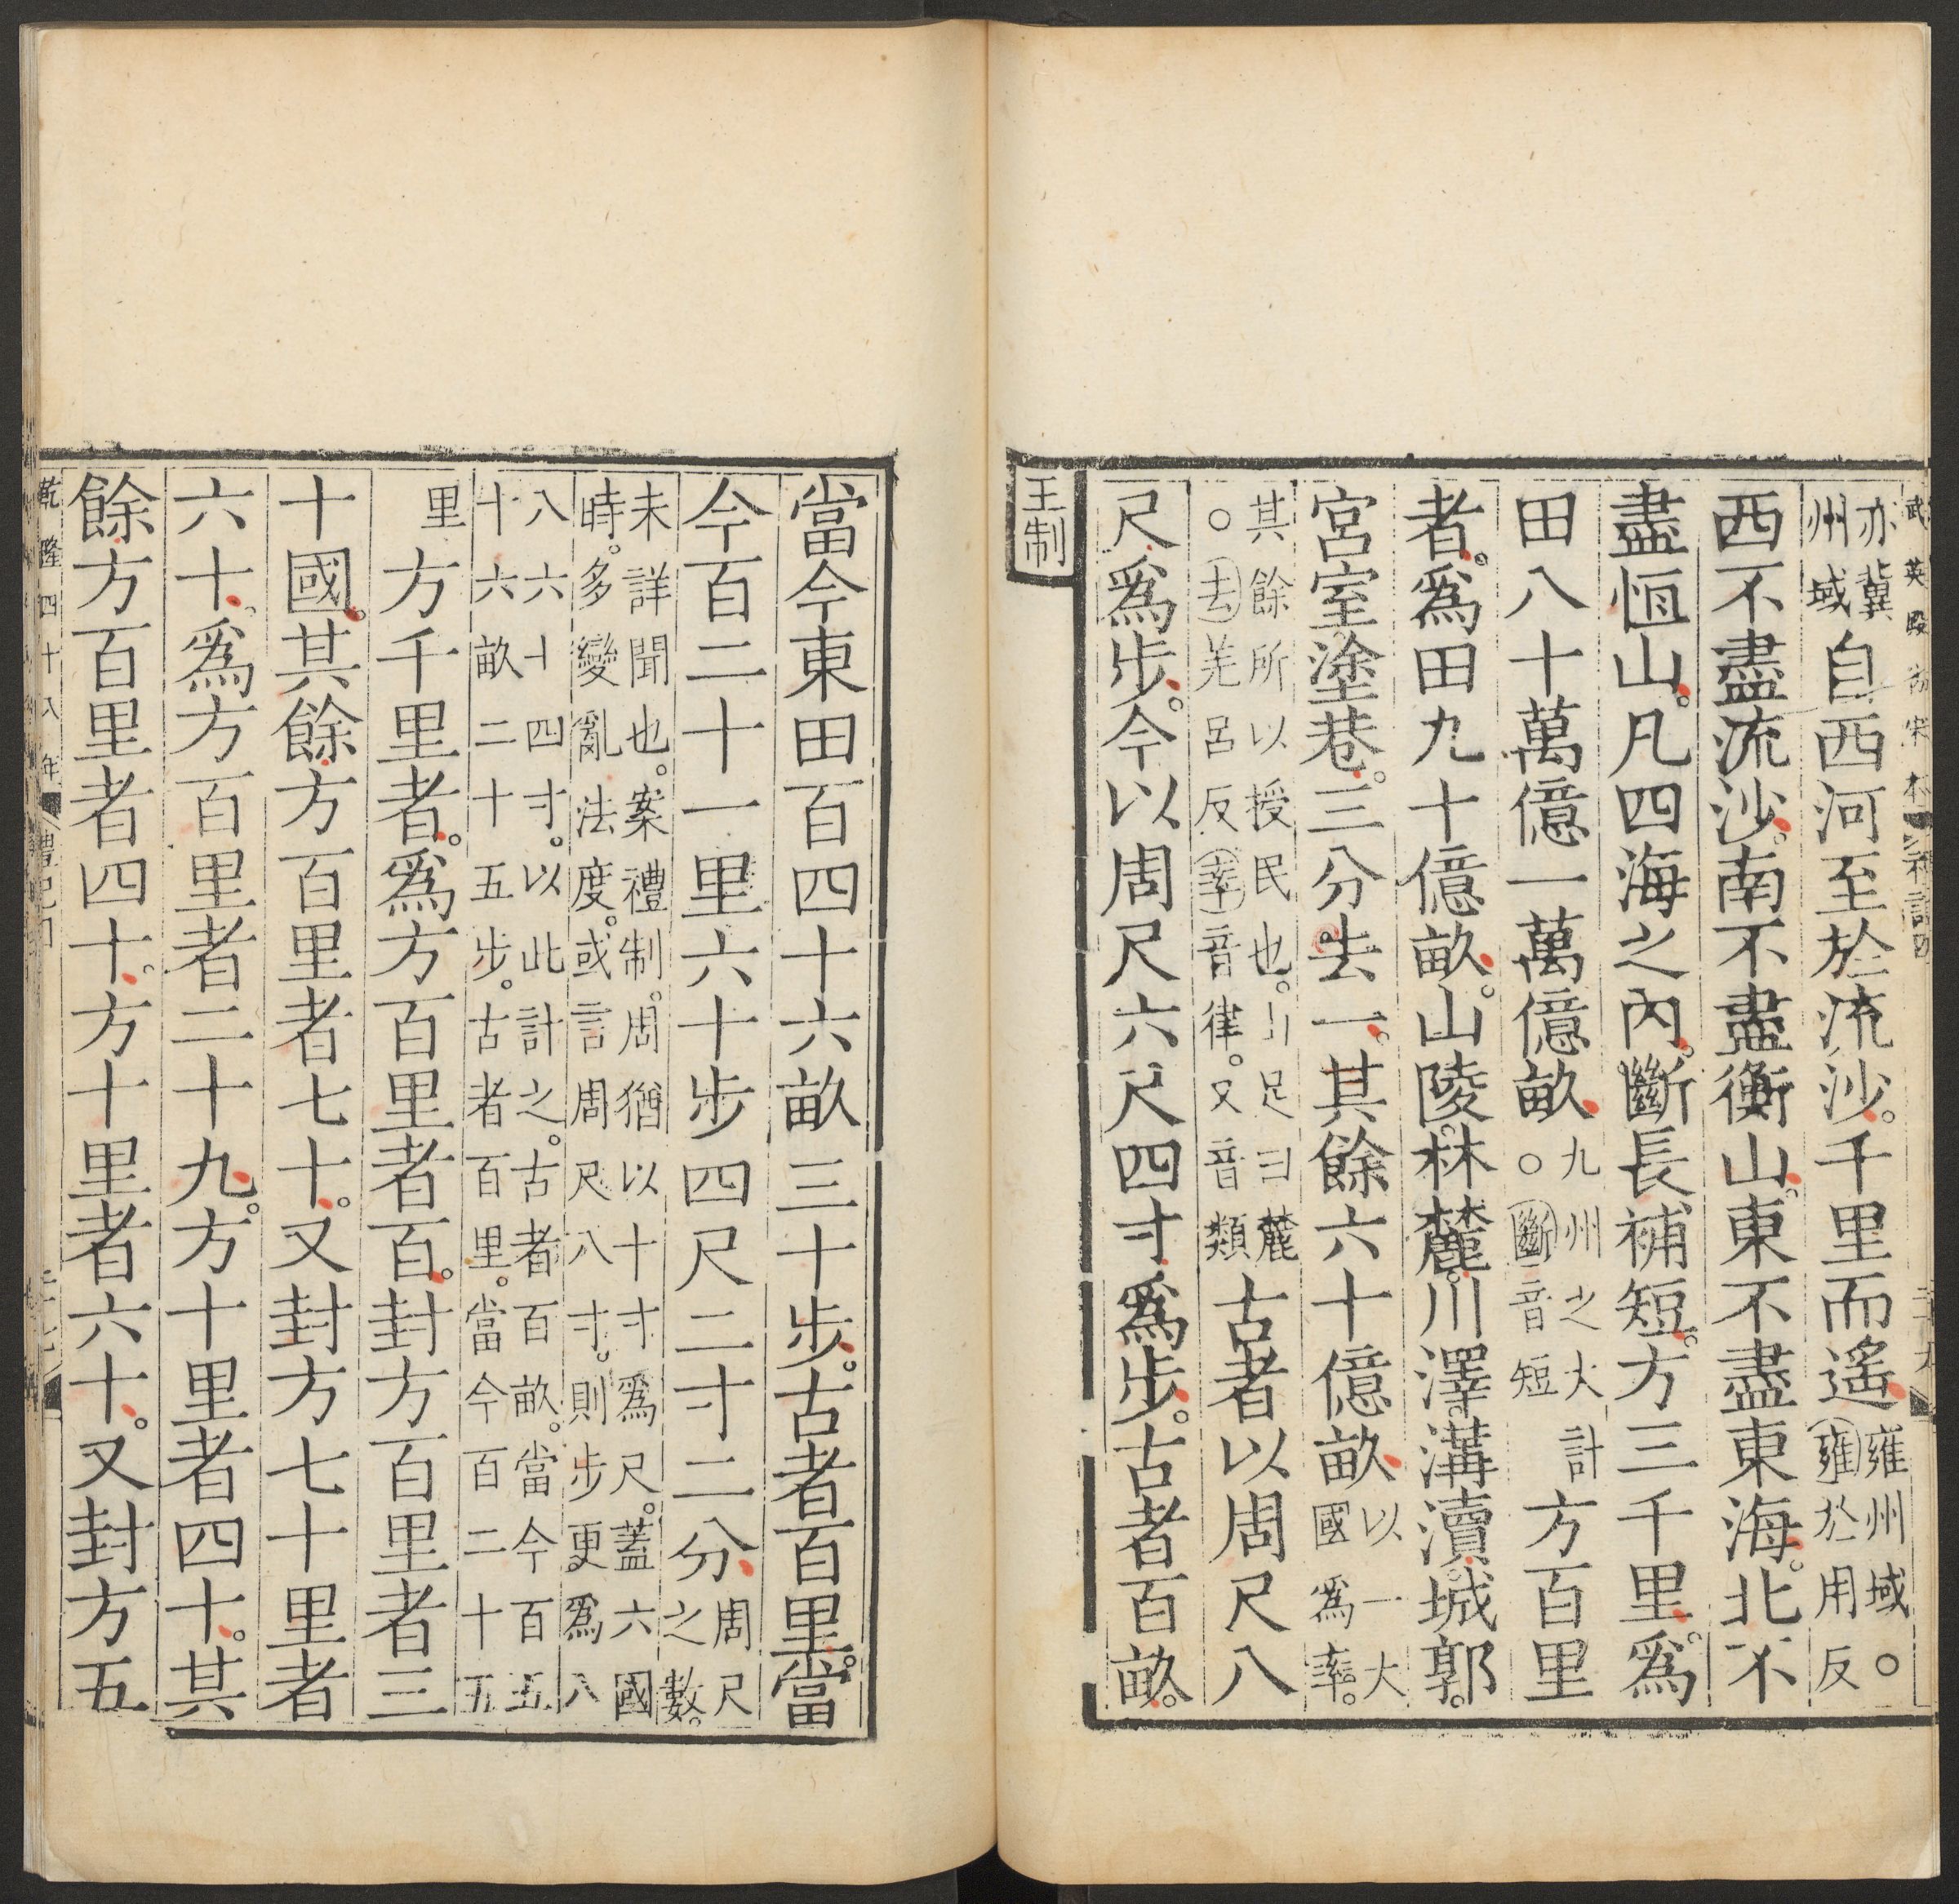 武英殿仿宋本
亦冀
州域
自西河至於流沙。千里而遙
雍州域○
雍於用反
西不盡流沙。南不盡衡山。東不盡東海。北不
盡恆山。凡四海之內。斷長補短。方三千里。爲
田八十萬億一萬億畝
九州之大計
○斷音短
方百里
者。爲田九十億畝。山陵。林麓。川澤。溝瀆。城郭。
宮室塗巷。三分去一。其餘六十億畝
以一大
國爲率。
其餘所以授民也。山足曰麓
○去羌呂反率音律。又音類
古者以周尺八
尺爲步。今以周尺六尺四寸爲步。古者百畝。
王制
當今東田百四十六畝三十步。古者百里。當
今百二十一里六十步四尺二寸二分
周尺
之數。
未詳聞也。案禮制。周猶以十寸爲尺。蓋六國
時。多變亂法度。或言周尺八寸。則步更爲八
八六十四寸。以此計之。古者百畝。當今百五
十六畝二十五步。古者百里。當今百二十五
里
方千里者。爲方百里者百。封方百里者三
十國。其餘方百里者七十。又封方七十里者
六十。爲方百里者二十九。方十里者四十。其
餘方百里者四十。方十里者六十。又封方五
乾隆四十八年
禮記四